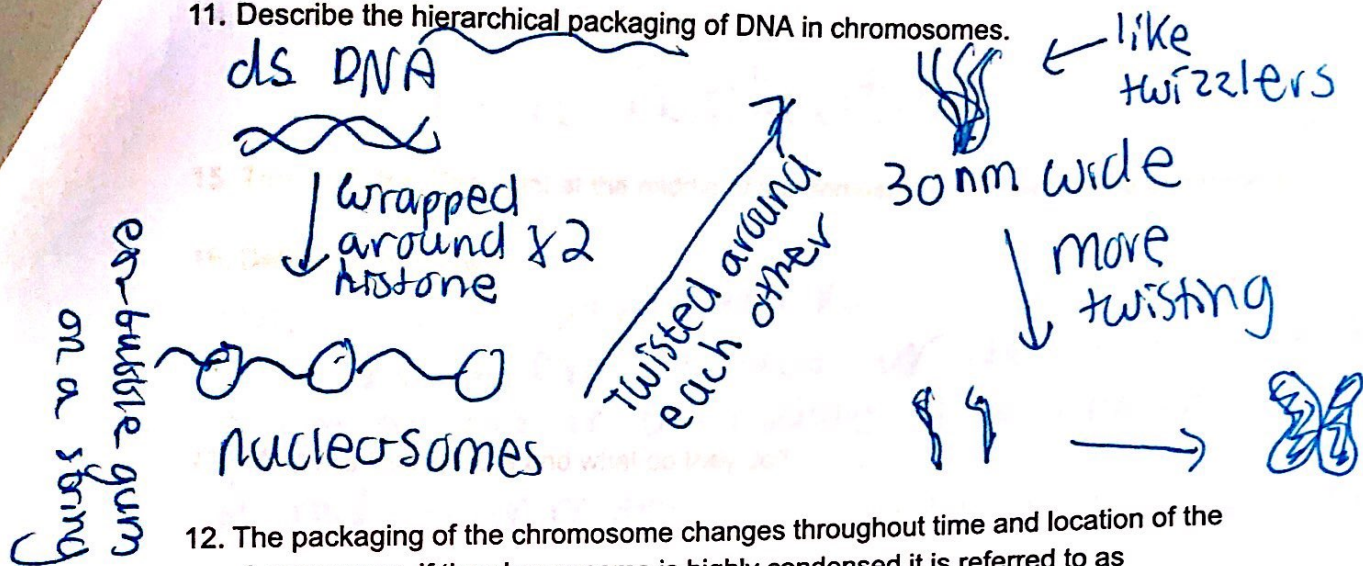 11. Describe the hierarchical packaging of DNA in chromosomes.
ds DNA
wrapped
around x2
histone
bubble gum
on a string
nucleosomes
twisted around
each other
like
twizzlers
30nm wide
more
twisting
12. The packaging of the chromosome changes throughout time and location of the
highly condensed it is referred to as